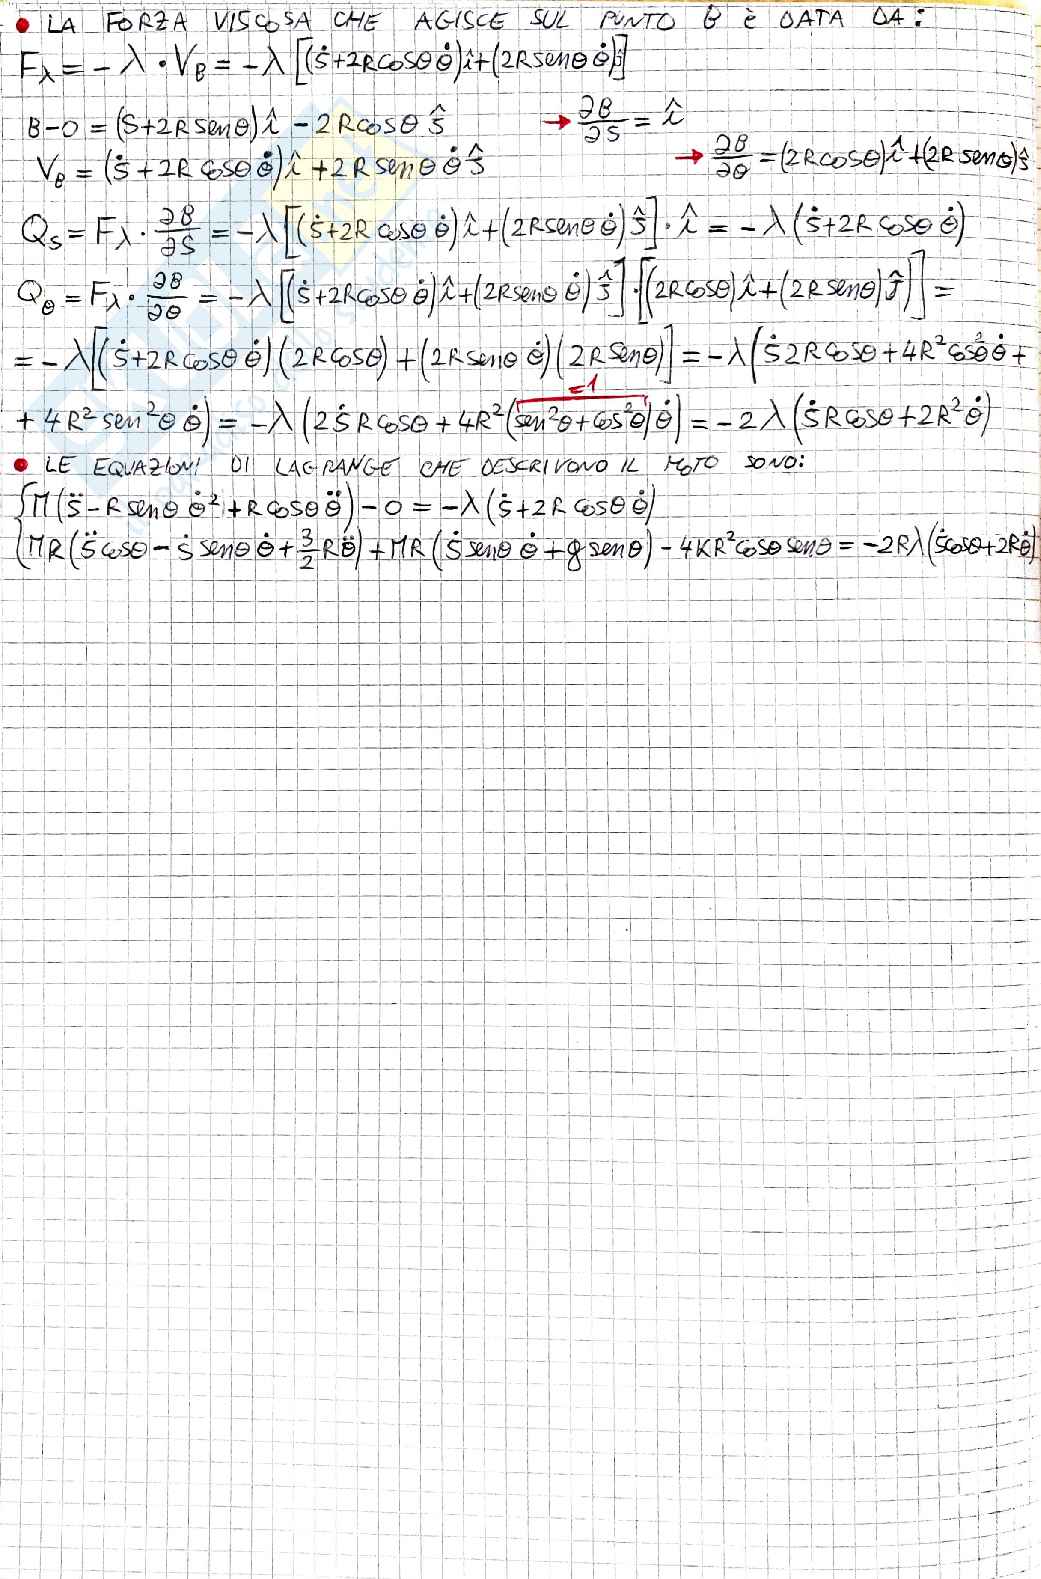 • LA FORZA VISCOSA CHE AGISCE SUL PUNTO B È DATA DA:
Fλ = -λ·V_B = -λ[(ṡ+2Rcosθ θ̇)î+(2Rsenθ θ̇)ĵ]
B-O = (S+2Rsenθ)î - 2Rcosθ ĵ → ∂B/∂S = î
V_B = (ṡ+2Rcosθ θ̇)î + 2Rsenθ θ̇ ĵ → ∂B/∂θ = (2Rcosθ)î+(2Rsenθ)ĵ
Q_S = Fλ · ∂B/∂S = -λ[(ṡ+2Rcosθ θ̇)î+(2Rsenθ θ̇)ĵ]·î = -λ(ṡ+2Rcosθ θ̇)
Q_θ = Fλ · ∂B/∂θ = -λ[(ṡ+2Rcosθ θ̇)î+(2Rsenθ θ̇)ĵ]·[(2Rcosθ)î+(2Rsenθ)ĵ)] =
= -λ[(ṡ+2Rcosθ θ̇)(2Rcosθ)+(2Rsenθ θ̇)(2Rsenθ)] = -λ(ṡ2Rcosθ+4R²cos²θ θ̇+
=1
+4R²sen²θ θ̇) = -λ(2ṡRcosθ+4R²(sen²θ+cos²θ)θ̇) = -2λ(ṡRcosθ+2R²θ̇)
• LE EQUAZIONI DI LAGRANGE CHE DESCRIVONO IL MOTO SONO:
{M(s̈-Rsenθ θ̇²+Rcosθ θ̈)-0 = -λ(ṡ+2Rcosθ θ̇)
MR(s̈cosθ-ṡsenθ θ̇+3/2Rθ̈)+MR(ṡsenθ θ̇+gsenθ)-4KR²cosθsenθ = -2Rλ(ṡcosθ+2Rθ̇)